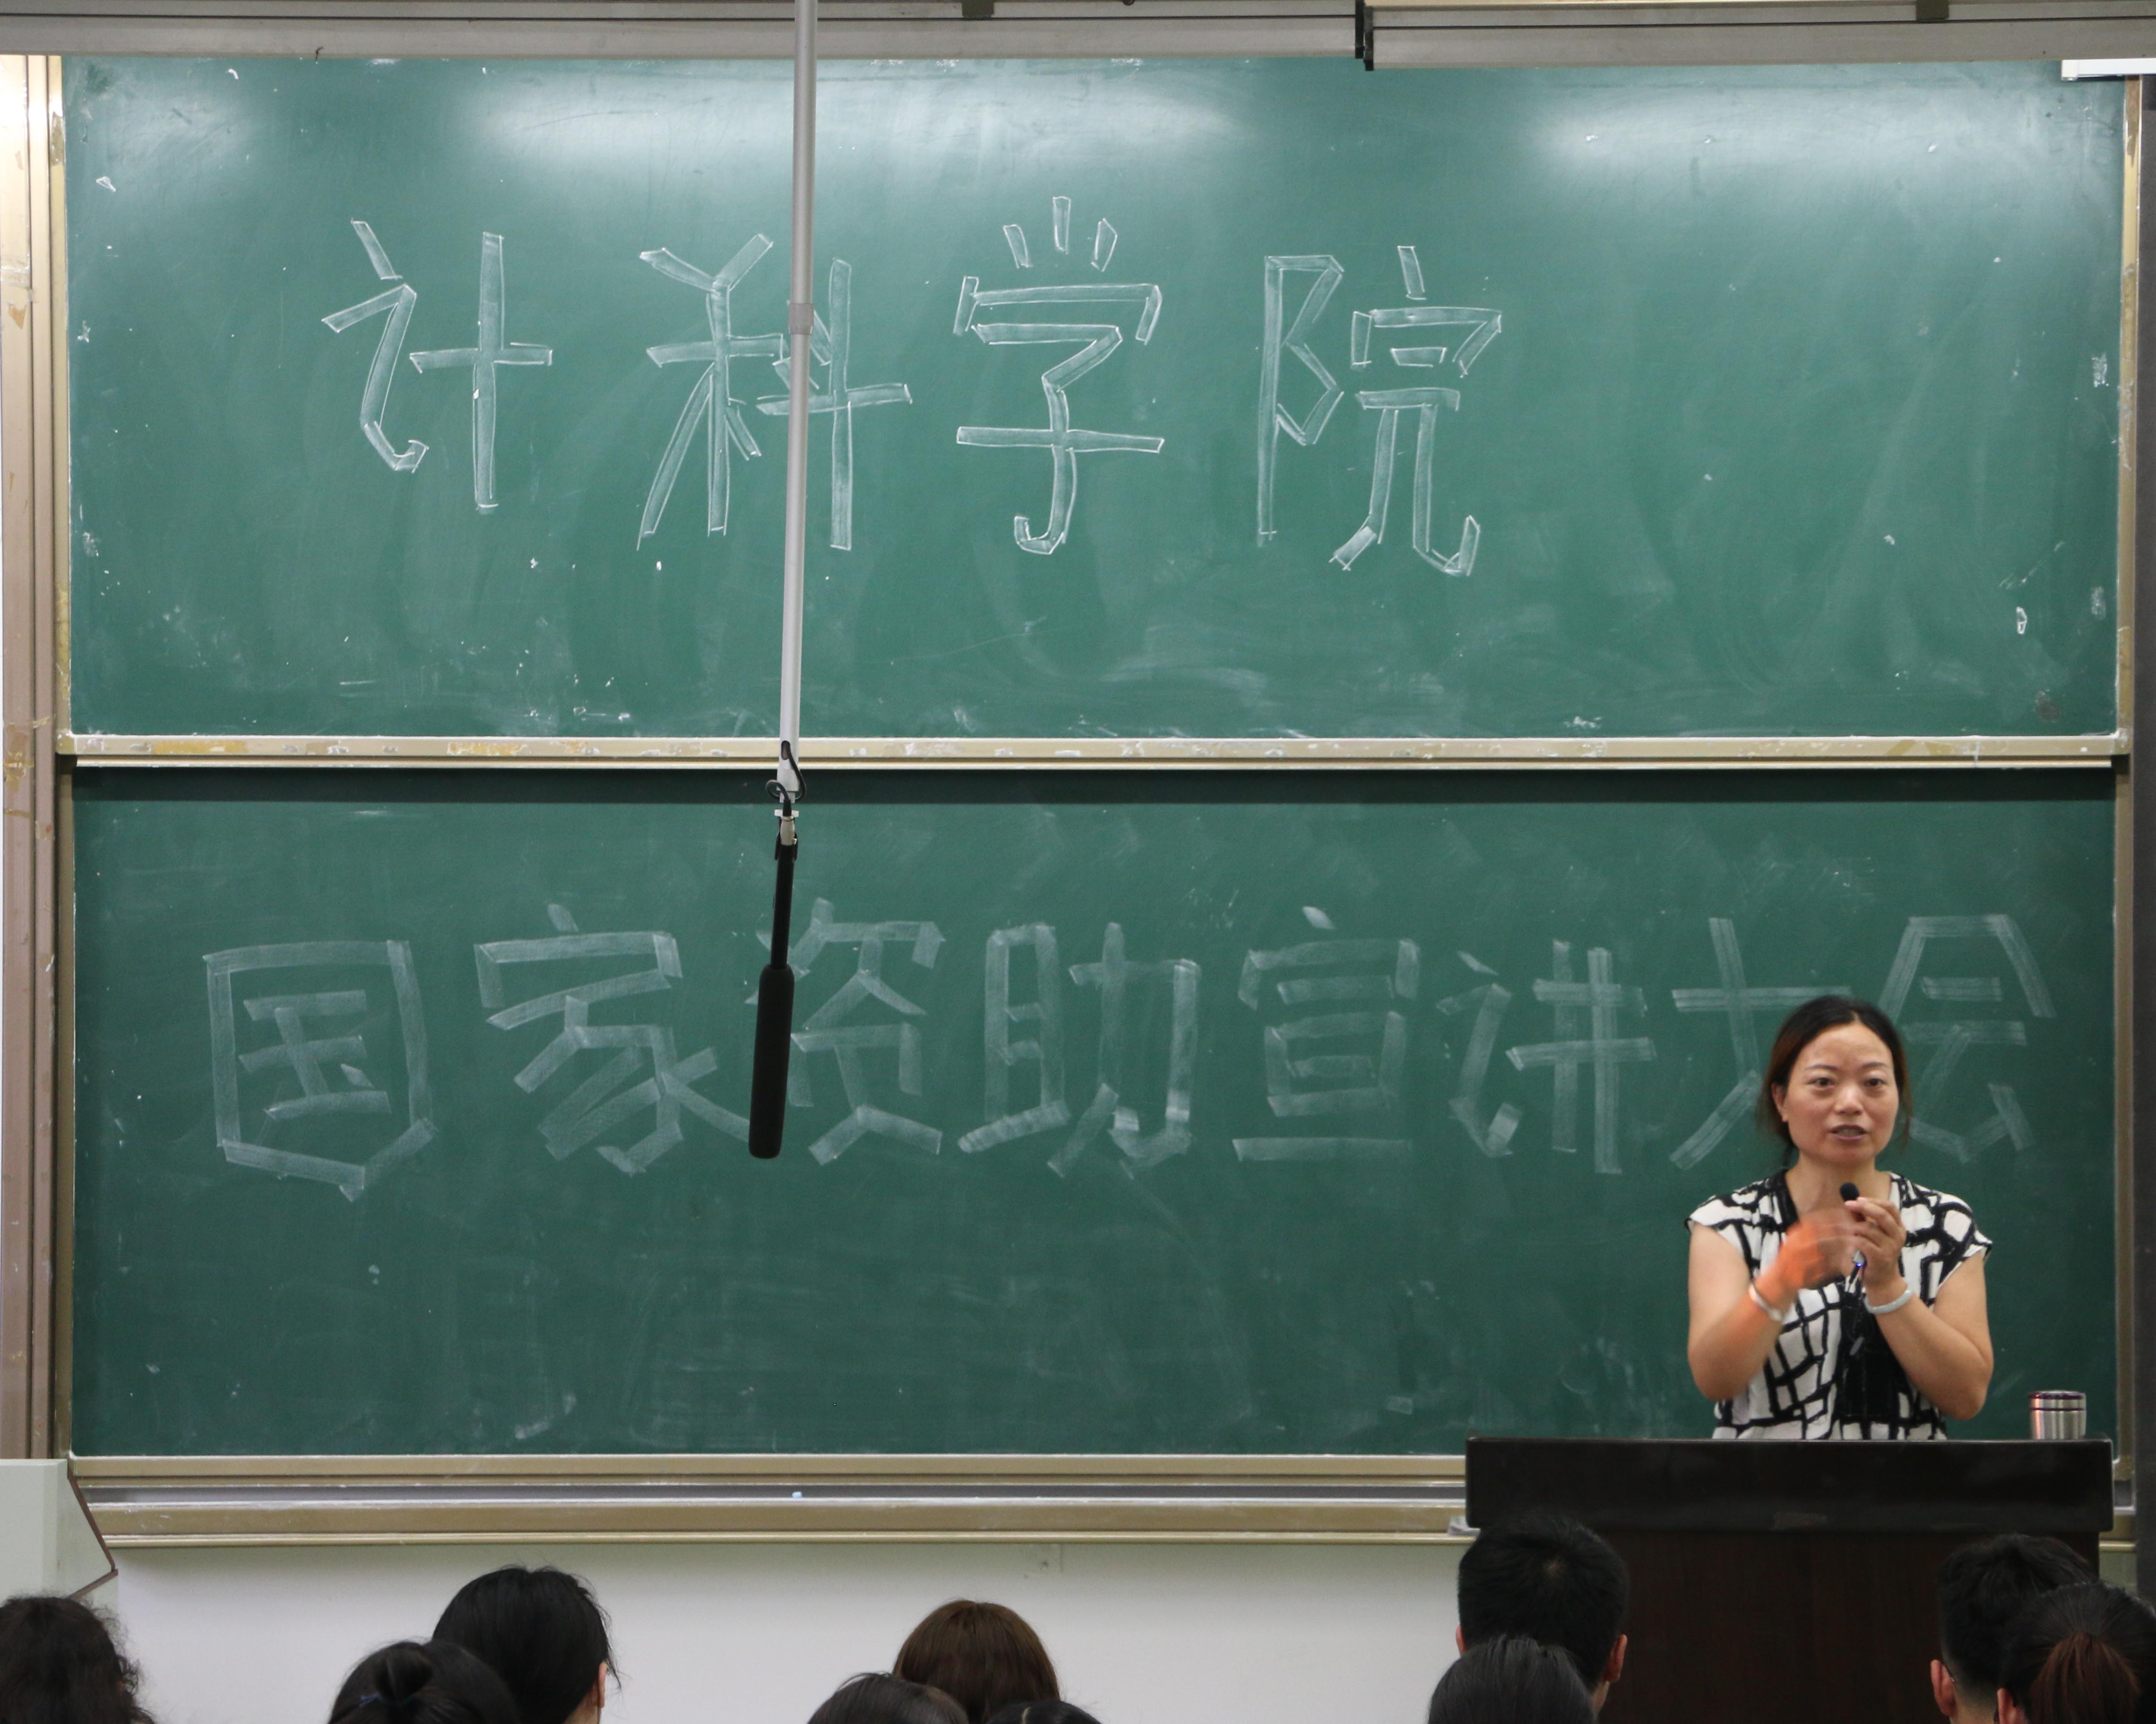 计科学院
国家资助宣讲大会